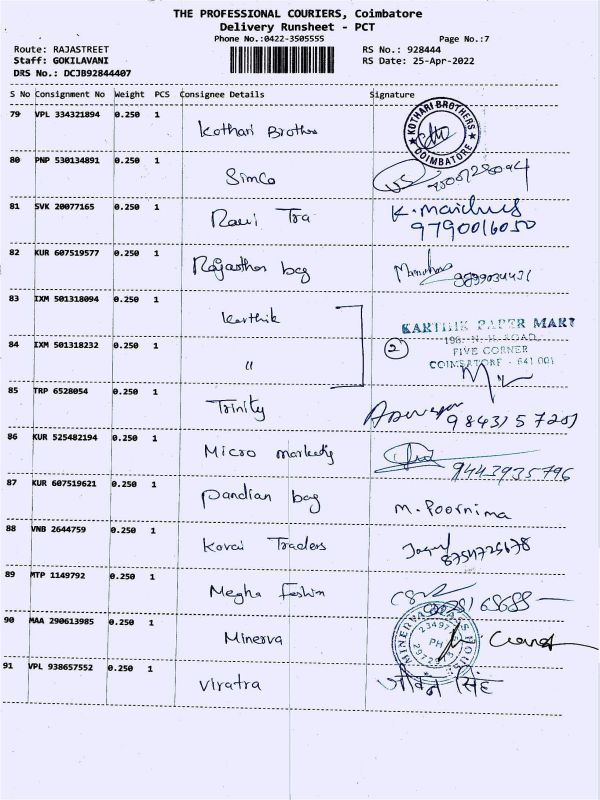 THE PROFESSIONAL COURIERS, Coimbatore
Delivery Runsheet - PCT
Phone No.:0422-3505555
Page No.:7
Route: RAJASTREET
RS No.: 928444
Staff: GOKILAVANI
RS Date: 25-Apr-2022
DRS No.: DCJB92844407
S No Consignment No Weight PCS Consignee Details Signature
79 VPL 334321894 0.250 1 Kothari Brothers
KOTHARI BROTHERS
COIMBATORE
80 PNP 530134891 0.250 1 Simco
81 SVK 20077165 0.250 1 Ravi Tra
9790016050
82 KUR 607519577 0.250 1 Rajasthan bag
83 IXM 501318094 0.250 1 Karthik
KARTHIK PAPER MART
84 IXM 501318232 0.250 1 "
2
FIVE CORNER
COIMBATORE - 641 001
85 TRP 6528054 0.250 1 Trinity
86 KUR 525482194 0.250 1 Micro marketing
9443935796
87 KUR 607519621 0.250 1 Pandian bag M. Poornima
88 VNB 2644759 0.250 1 Kovai Traders
8754725678
89 MTP 1149792 0.250 1 Megha Fashion
90 MAA 290613985 0.250 1 Minerva
MINERVA
PH
91 VPL 938657552 0.250 1 Viratra जीवन सिंह